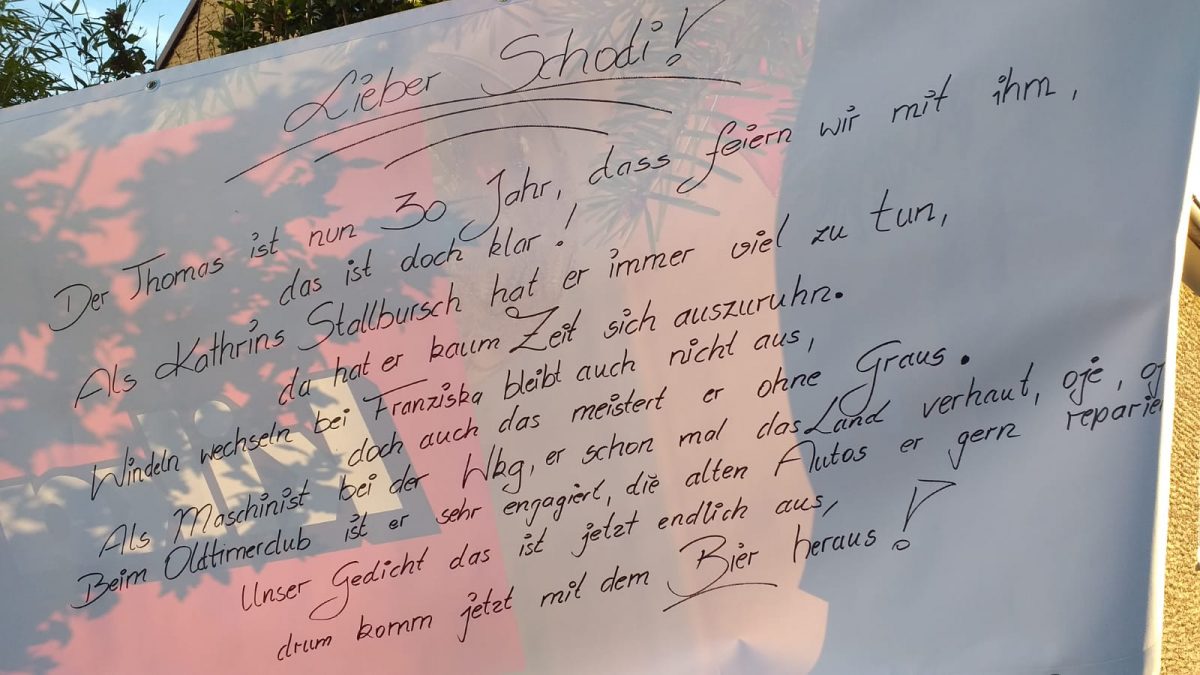 Lieber Schodi!
Der Thomas ist nun 30 Jahr, dass feiern wir mit ihm,
das ist doch klar!
Als Kathrins Stallbursch hat er immer viel zu tun,
da hat er kaum Zeit sich auszuruhn.
Windeln wechseln bei Franziska bleibt auch nicht aus,
doch auch das meistert er ohne Graus.
Als Maschinist bei der Wbg, er schon mal das Land verhaut, oje,
Beim Oldtimerclub ist er sehr engagiert, die alten Autos er gern
Unser Gedicht das ist jetzt endlich aus,
drum komm jetzt mit dem Bier heraus!